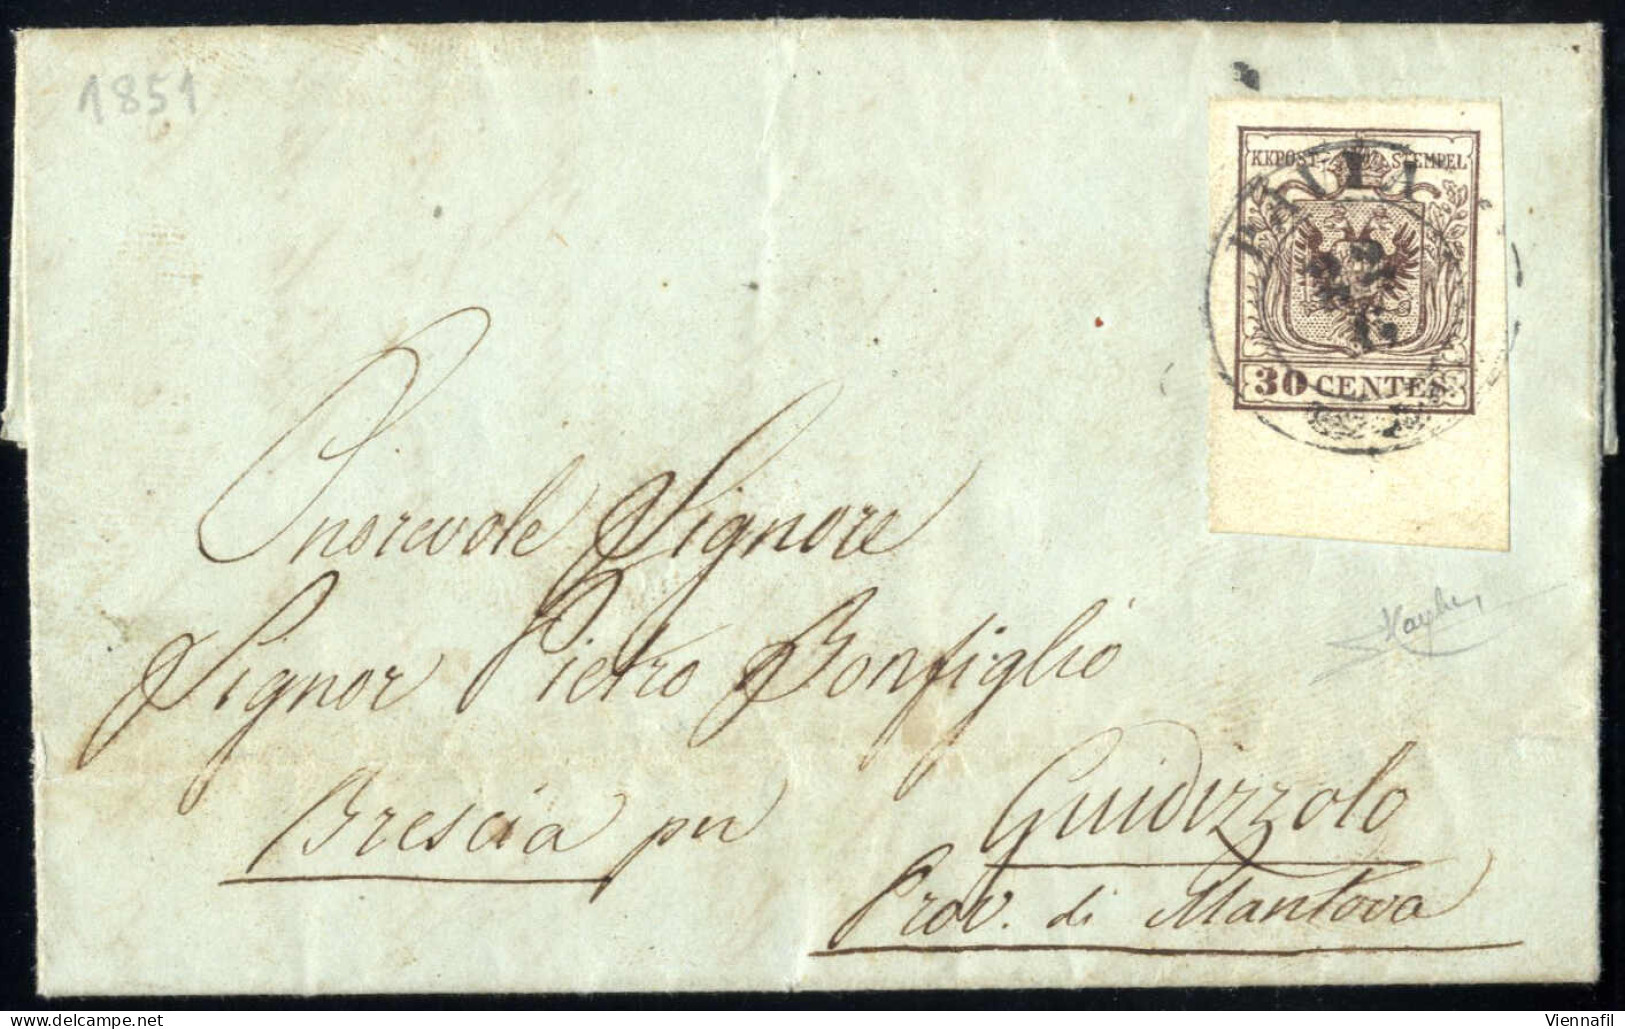 1851
KKPOST-STEMPEL
30 CENTES.
Onorevole Signore
Signor Pietro Bonfiglio
Brescia per Guidizzolo
Prov. di Mantova
Viennafil